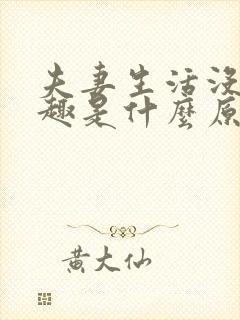 夫妻生活沒
趣是什麼原
黄大仙